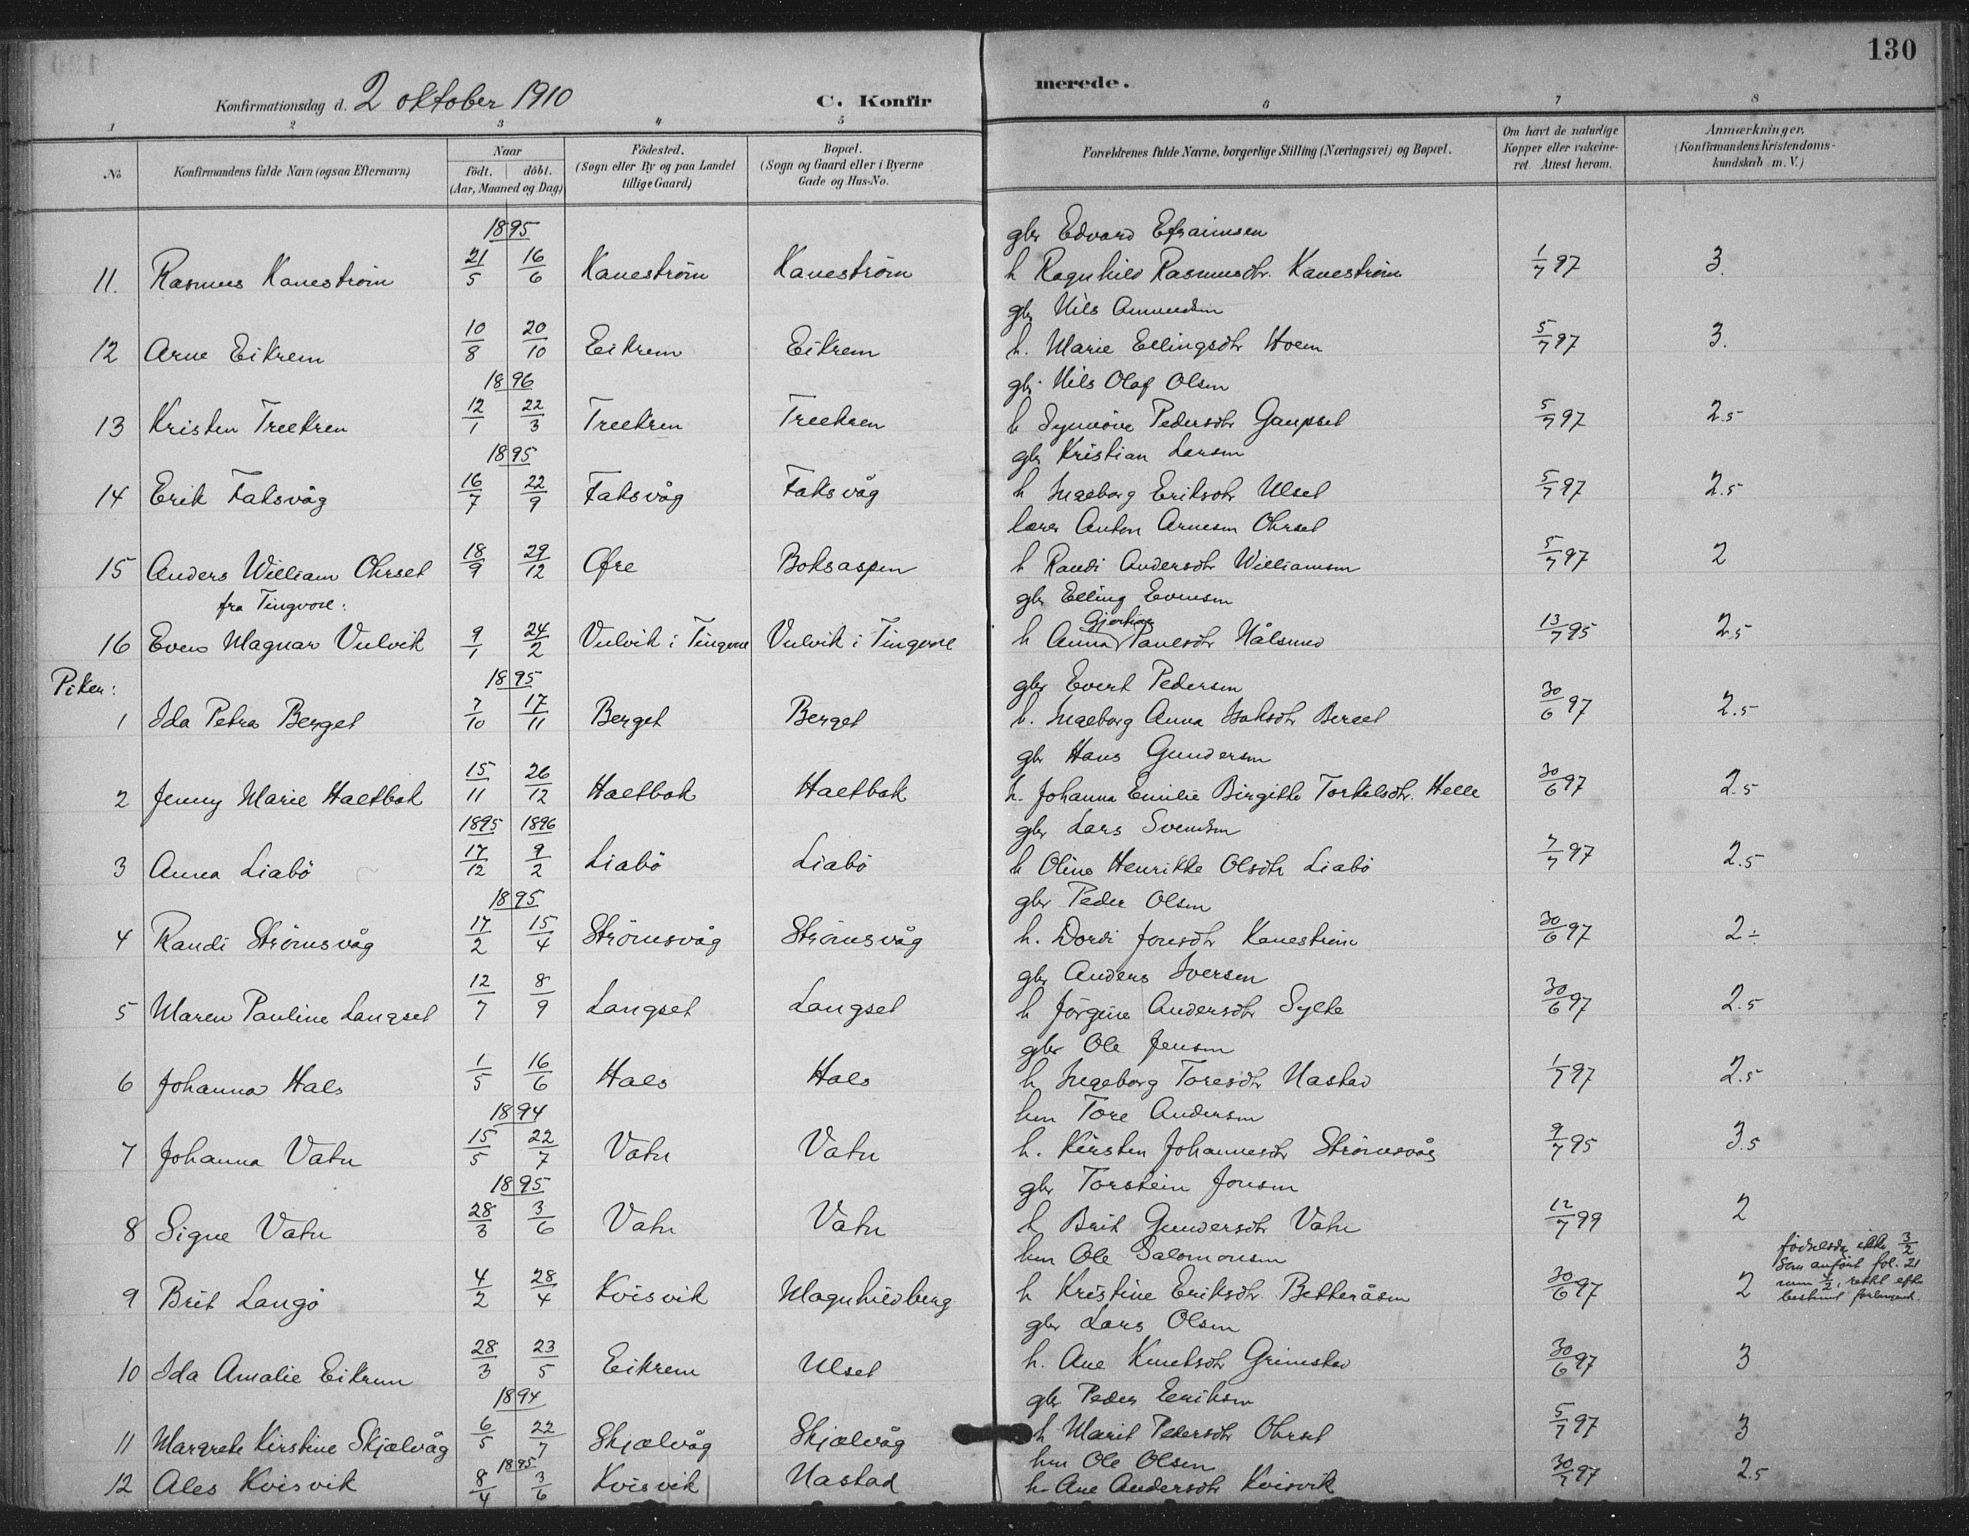 130
Konfirmationsdag d. 2 oktober 1910
C. Konfir
merede.
1 2 3 4 5 6 7 8
No
Konfirmandens fulde Navn (ogsaa Efternavn)
Naar
födt. döbt.
(Aar, Maaned og Dag)
Födested.
(Sogn eller By og paa Landet
tillige Gaard)
Bopæl.
(Sogn og Gaard eller i Byerne
Gade og Hus-No.
Forældrenes fulde Navne, borgerlige Stilling (Næringsvei) og Bopæl.
Om havt de naturlige
Kopper eller vakcine-
ret. Attest herom.
Anmærkninger.
(Konfirmandens Kristendoms-
kundskab m. V.)
1895
gbr Edvard Efraimsen
11. Rasmus Kanestrøm 21/5 16/6 Kanestrøm Kanestrøm h Ragnhild Rasmusdtr. Kanestrøm 1/7 97 3.
gbr Nils Amundsen
12 Arne Eikrem 10/8 20/10 Eikrem Eikrem h. Marie Ellingsdtr Hoem 5/7 97 3.
1896
gbr. Nils Olaf Olsen
13 Kristen Treekren 12/1 22/3 Treekren Treekren h Synnöve Pedersdtr Gaupset 5/7 97 2.5
1895
gbr Kristian Larsen
14 Erik Faksvåg 16/7 22/9 Faksvåg Faksvåg h Ingeborg Eriksdtr Ulset 5/7 97 2.5
lærer Anton Arnesen Ohrset
15 Anders William Ohrset 18/9 29/12 Øre Boksaspen h Randi Andersdtr Williamsen 5/7 97 2
fra Tingvoll:
gbr Elling Evensen
Gjertine
16 Even Magnar Vulvik 9/1 24/2 Vulvik i Tingvoll Vulvik i Tingvoll h Anna Paulsdtr Hålsund 13/7 95 2.5
Piker:
1895
gbr Evert Pedersen
1 Ida Petra Berget 7/10 17/11 Berget Berget h. Ingeborg Anna Isaksdtr Berget 30/6 97 2.5
gbr Hans Gundersen
2 Jenny Marie Haltbak 15/11 26/12 Haltbak Haltbak h. Johanna Emilie Birgitte Torkelsdtr. Helle 30/6 97 2.5
1895 1896
gbr Lars Svendsen
3 Anna Liabö 17/12 9/2 Liabö Liabö h Oline Henrikke Olsdtr Liabö 7/7 97 2.5
1895
gbr Peder Olsen
4 Randi Strømsvåg 17/2 15/4 Strømsvåg Strømsvåg h. Dordi Jonsdtr Kanestrøm 30/6 97 2 ÷
gbr Anders Iversen
5 Maren Pauline Langset 12/7 8/9 Langset Langset h Jörgine Andersdtr Sylte 30/6 97 2.5
gbr Ole Jensen
6 Johanna Hals 1/5 16/6 Hals Hals h Ingeborg Toresdtr Nastad 1/7 97 2.5
1894
hm Tore Andersen
7 Johanna Vatn 15/5 22/7 Vatn Vatn h. Kirsten Johannesdtr Strømsvåg 9/7 95 3.5
1895
gbr Torstein Jonsen
8 Signe Vatn 28/3 3/6 Vatn Vatn h Brit Gundersdtr Vatn 12/7 99 2
hm Ole Salomonsen
9 Brit Langö 4/2 28/4 Kvisvik Magnhildberg h Kristine Eriksdtr. Betteråsen 30/6 97 2
fødselsdg ikke 3/2
som anført fol. 21
gbr Lars Olsen
10 Ida Amalie Eikrem 28/3 23/5 Eikrem Ulset h. Ane Knutsdtr Grimstad 30/6 97 3
1894
gbr Peder Eriksen
11 Margrete Kirstine Skjælvåg 6/5 22/7 Skjælvåg Skjælvåg h Marit Pedersdtr Ohrset 5/7 97 3
1895
hm Ole Olsen
12 Ales Kvisvik 8/4 3/6 Kvisvik Nastad h. Ane Andersdtr Kvisvik 30/7 97 2.5